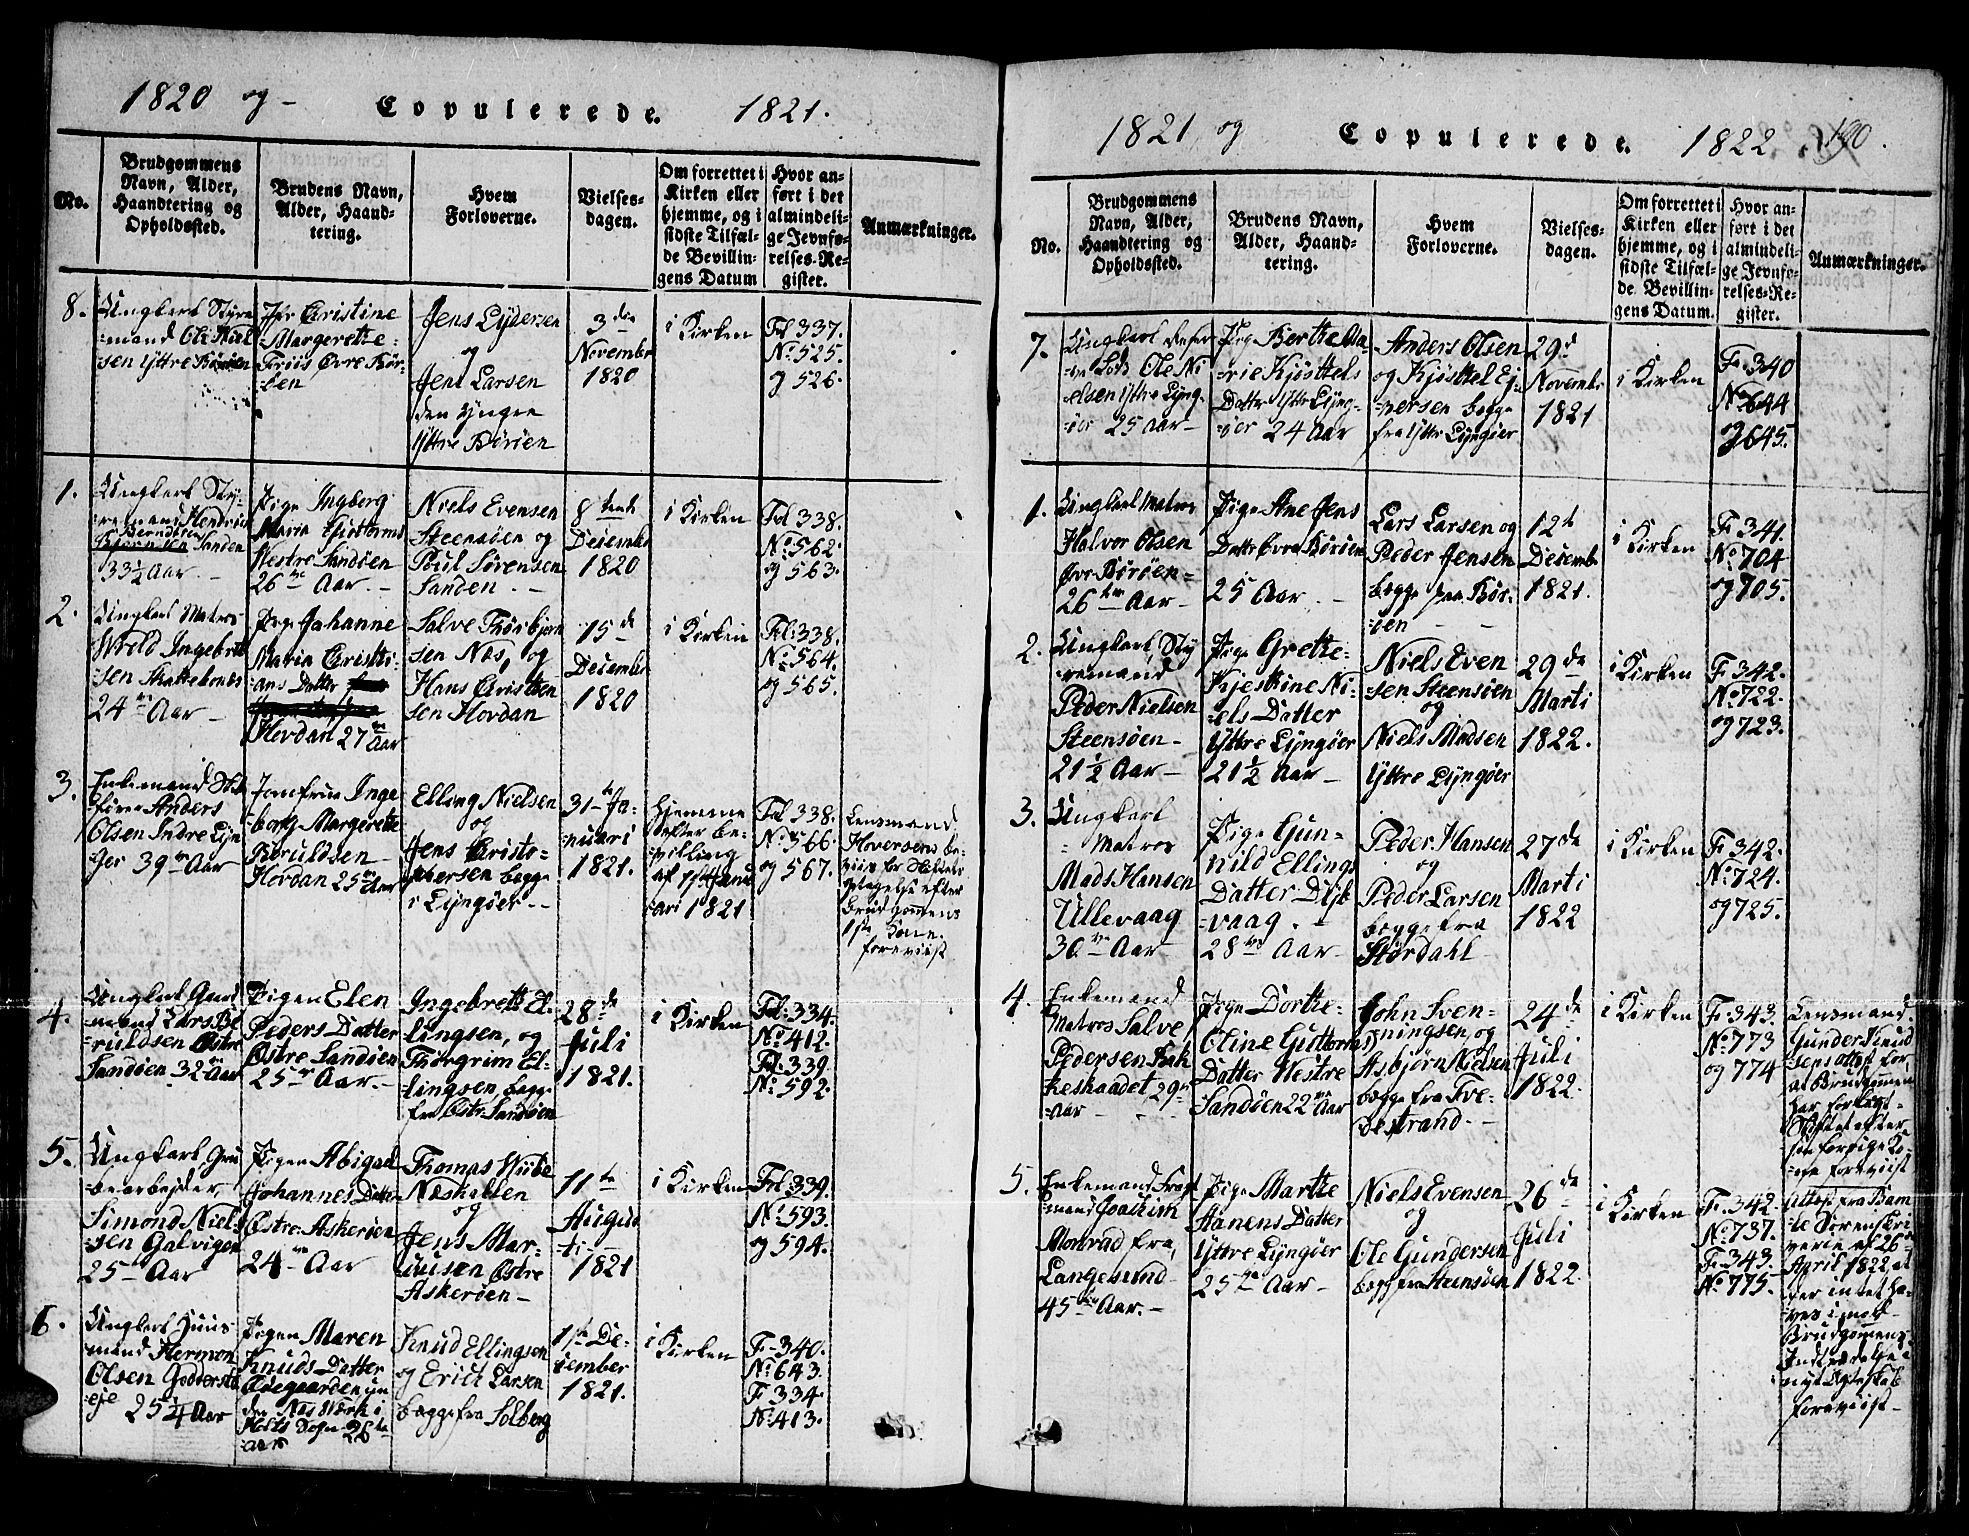 1820 og - Copulerede. 1821.
No.
Brudgommens
Navn, Alder,
Haandtering og
Opholdssted.
Brudens Navn,
Alder, Haand-
tering.
Hvem
Forloverne.
Vielses-
dagen.
Om forrettet i
Kirken eller
hjemme, og i
sidste Tilfæl-
de Bevillin-
gens Datum
Hvor an-
ført i det
almindeli-
ge Jevnfø-
relses-Re-
gister.
Anmærkninger.
8.
Ungkarl Styr
mand Ole Niel
sen Yttre Børøen
Jfr Christine
Margerette
Friis Øvre Bør-
øen
Jens Lydersen
og
Jens Larsen
den yngre
Yttre Børøen
3die
November
1820
i Kirken
Fol 337.
No. 525.
og 526.
1.
Ungkarl Sty-
remand Hendrich
Berndtsen
Sanden
33½ Aar. -
Pige Ingberg
Maria Guttorms
Westre Sandøen
26 Aar. -
Niels Evensen
Steensøen og
Poul Sørensen
Sanden. -
8tende
Decembr
1820
i Kirken
Fol 338.
No. 562.
og 563.
2.
Ungkarl Matros
Wrold Ingebret
sen Skattebones
24 Aar -
Pige Johanne
Maria Christi-
ans Datter
Hovdan 27 Aar
Salve Thorbjørn
sen Næs, og
Hans Christen
sen Hovdan
15de
Decembr
1820
i Kirken
Fol: 338.
No. 564.
og 565.
3.
Enkemand Skip
fører Anders
Olsen Indre Lyn
gør 39 Aar
Jomfrue Inge
borg Margerette
Beruldsen
Hovdan 25 Aar
Elling Nielsen
og
Jens Christo-
phersen begge
i Lyngøer --
31te Ja-
nuari
1821.
Hjemme
efter be-
villing
af 15de Janu
ari 1821
Fol 338.
No. 566.
og 567.
Lensmand
Hoversens be-
viis for Skiftets
Slagelse efter
brudgommens
1ste Kone.
foreviist
4.
Ungkarl Gaard
mand Lars Be
ruldsen Østre
Sandøen 32 Aar
Pigen Elen
Peders Datter
Østre Sandøen
25 Aar. -
Ingebrett El-
lingsen, og
Thorgrim El-
lingsen, begge
fra Østre Sandøen
28de
Juli
1821.
i Kirken
Fol: 334.
No. 412.
Fol. 339.
No. 592.
5.
Ungkarl Gru
bearbeider,
Simond Niel-
sen Galvigen
25 Aar
Pigen Abigael
Johannes Datter
Østre Askerøen
24 Aar
Thomas Wiibe
Næskallen
og
Jens Mar-
cusen Østre
Askerøen -
11te
August
1821
i Kirken
Fol. 339.
No. 593.
og 594.
6.
Ungkarl Huus
mand Hermon
Olsen Godderstad
eje 25¼ Aar
Pigen Maren
Knuds Datter
Øjegaarden un
der Næs Værk i
Holts Sogn 26
Aar
Knud Ellingsen
og Erich Larsen
begge fra Solberg
1ste De-
cember
1821.
i Kirken
F. 340.
No. 643.
F. 334.
No. 413.
1821 og Copulerede. 1822 190.
No.
Brudgommens
Navn, Alder,
Haandtering og
Opholdssted.
Brudens Navn,
Alder, Haand-
tering.
Hvem
Forloverne.
Vielses-
dagen.
Om forrettet i
Kirken eller
hjemme, og i
sidste Tilfæl-
de Bevillin-
gens Datum.
Hvor an-
ført i det
almindeli-
ge Jevnfø-
relses-Re-
gister.
Anmærkninger.
7.
Ungkarl
Lods Ole Ni
elsen Yttre Lyng-
øer 25 Aar -
Pige Berthe Ma-
rie Kjøsttels
Datter Yttre Lyng-
øer 24 Aar
Anders Olsen
og Kjøsttel Ej-
versen begge
fra Yttre Lyngøer
29de
Novembr
1821
i Kirken
F. 340
No. 644
og 645.
1.
Ungkarl Matros
Halvor Olsen
Øvre Børøen
26 Aar -
Pige Ane Jens
Datter Øvre Børøen
25 Aar. -
Lars Larsen og
Peder Jensen
begge paa Bør-
øen -
12te
Decembr
1821.
i Kirken
F. 341.
No. 704
og 705.
2.
Ungkarl Sty
remand
Peder Nielsen
Steensøen -
21½ Aar -
Pige Grethe
Kjestine Ni-
els Datter
Yttre Lyngøer
21½ Aar -
Niels Even
sen Steensøen
og
Niels Madsen
Yttre Lyngøer
29de
Marti
1822.
i Kirken
F. 342.
No. 722.
og 723.
3.
Ungkarl
Matros
Mads Hansen
Ullevaag
30 Aar -
Pige Gun-
nild Ellings
Datter Dyb
vaag. -
28 Aar -
Peder Hansen
og
Peder Larsen
begge fra
Størdahl
27de
Marti
1822
i Kirken
F. 342.
No. 724.
og 725.
4.
Enkemand
Matros Salve
Pedersen Bak
keskaadet 29
Aar -
Pige Dorthe
Oline Guttorms
Datter Westre
Sandøen 22 Aar
John Sven-
ningsen, og
Asbjørn Nielsen
begge fra Tve-
destrand. -
24de
Juli
1822.
i Kirken
F. 343.
No. 773
og 774
Lensmand
Gunder Knud
sens attest for,
at Brudgommen
har forlagt
Skiftet efter
sin forrige Ko-
ne foreviist
5.
Enkemand
mand Joachim
Monrad fra
Langesund
45 Aar. -
Pige Marthe
Hanens Datter
Yttre Lyngøer
25 Aar -
Niels Evensen
og
Ole Gundersen
begge fra Steensøen
26de
Juli
1822.
i Kirken
F. 342.
No. 737.
F. 343.
No. 775.
Attest fra Bam
le Sorenskri
verie af 26
April 1822, at
der intet ha-
ves imod
Brudgommens
Indtrædelse i
nyt Ægteskab
foreviist -